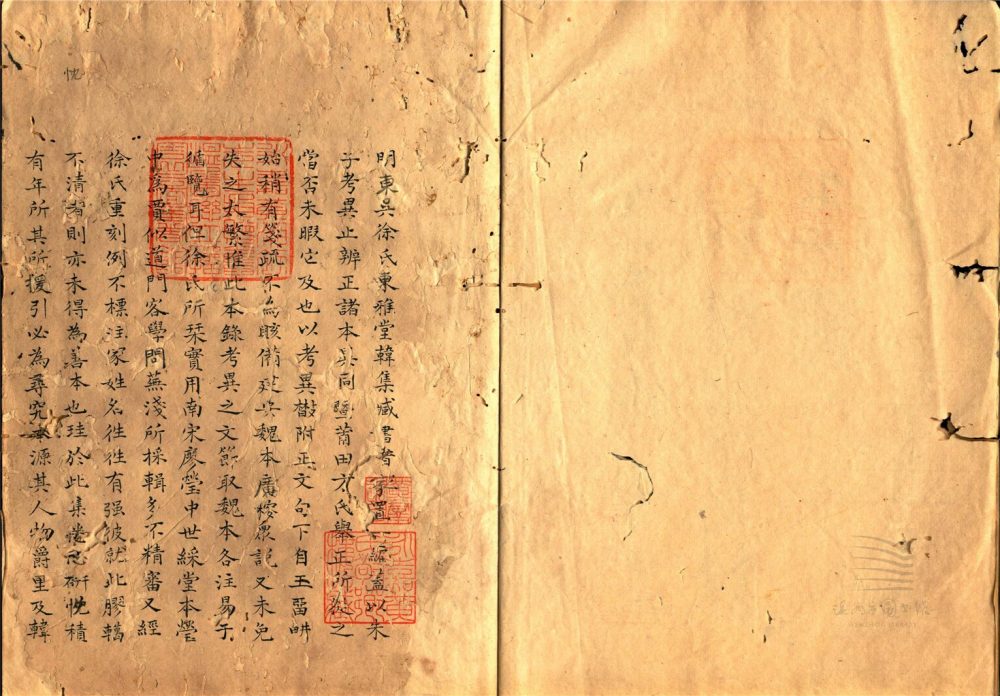 忱
明東吳徐氏東雅堂韓集臧書者家置一編蓋以朱
子考異止辨正諸本異同暨莆田方氏舉正所疑之
當否未暇它及也以考異散附正文句下自王留畊
始稍有箋疏不為賅備建安魏本廣摭衆說又未免
失之太繁惟此本錄考異之文節取魏本各注易于
循覽耳但徐氏所栞實用南宋廖瑩中世綵堂本瑩
中為賈似道門客學問蕪淺所採輯多不精審又經
徐氏重刻例不標注家姓名往往有强彼就此膠轕
不清者則亦未得為善本也珪於此集惓惓研悅積
有年所其所援引必為尋究本源其人物爵里及韓
温州市圖書館
WENZHOU LIBRARY